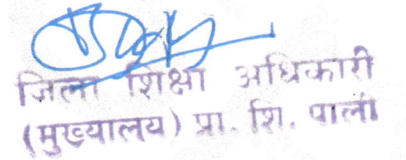 जिला शिक्षा अधिकारी
(मुख्यालय) प्रा. शि. पाली